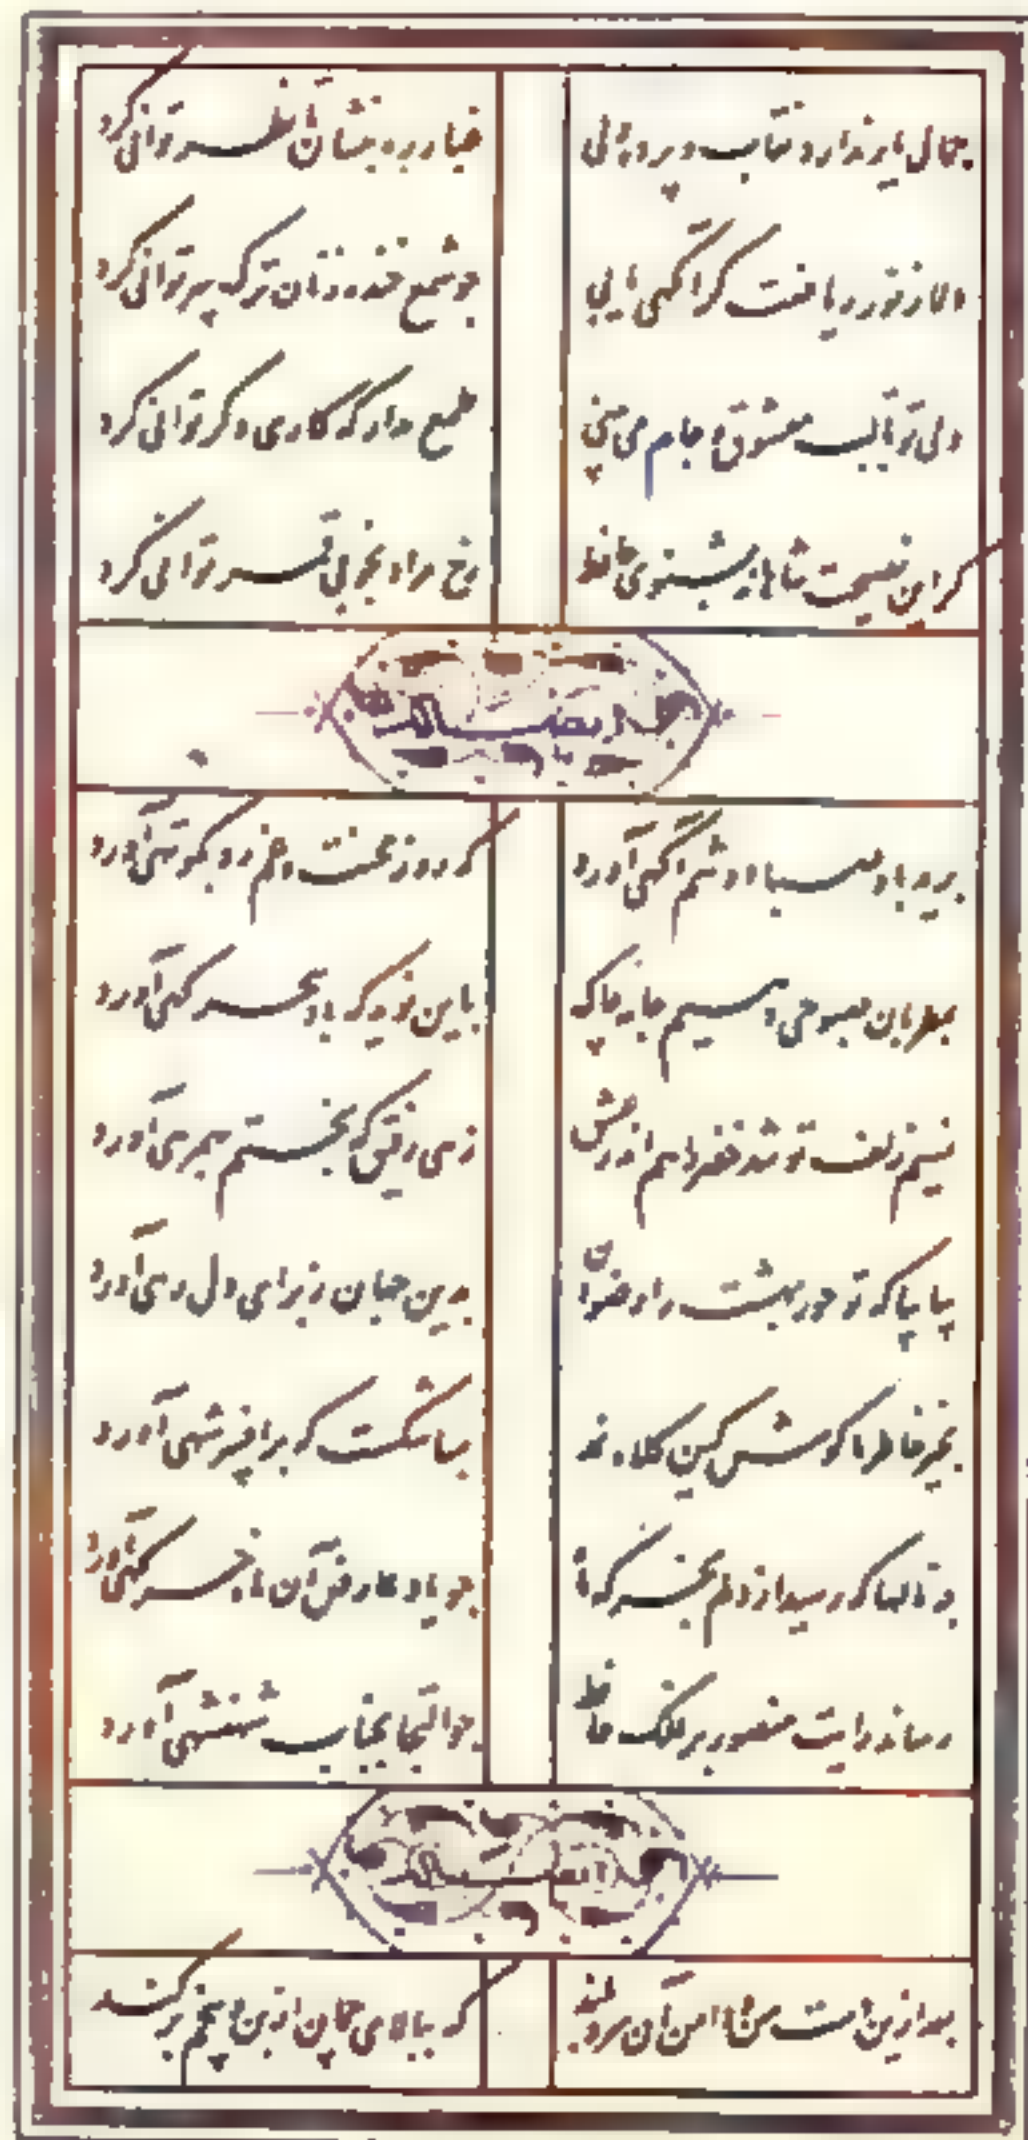 جمال یار ندارد نقاب و پرده ولی
غبار ره بنشان تا نظر توانی کرد
دلا ز نور ریاضت گر آگهی یابی
چو شمع خنده زنان ترک سر توانی کرد
ولی تو تا لب معشوق و جام می بینی
طمع مدار که کاری دگر توانی کرد
گر این نصیحت شاهانه بشنوی حافظ
برید باد صبا دوشم آگهی آورد
که روز محنت و غم رو بکوتهی آورد
بمطربان صبوحی دهیم جامه چاک
باین نوید که باد سحر گهی آورد
نسیم زلف تو شد خضر راهم اندر عشق
زهی رفیق که بختم بهمرهی آورد
بیا بیا که تو حور بهشت را رضوان
بدین جهان ز برای دل رهی آورد
بخیر خاطر ما کوش کین کلاه نمد
بسا شکست که بر افسر شهی آورد
چه نالها که رسید از دلم بخرگه ماه
چو یاد عارض آن ماه خرگهی آورد
رساند رایت منصور بر فلک حافظ
چو التجا بجناب شهنشهی آورد
بعد ازین دست من و دامن آن سرو بلند
که ببالای چمان از بن و بیخم بر کند